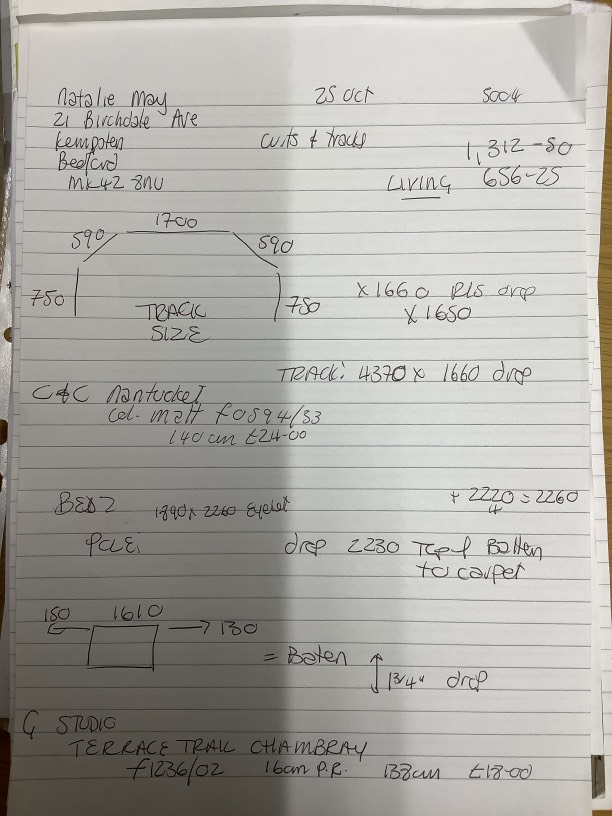 Natalie May 25 Oct 5004
21 Birchdale Ave
Kempsten Curts & tracks
Bedford 1,312-50
MK42 8NU LIVING 656-25
1700
590 590
750 750 x 1660 RLS drop
TRACK x 1650
SIZE
TRACK: 4370 x 1660 drop
C&C Nantucket
Col- Matt f0594/33
140cm £24-00
BED 2 1890 x 2260 Eyelet + 2220 = 2260
4
Pole drop 2230 Top of Batten
to carpet
150 1610 130
= Baten 1 3/4" drop
STUDIO
TERRACE TRAIL CHAMBRAY
f1236/02 16cm P.R. 138cm £18-00